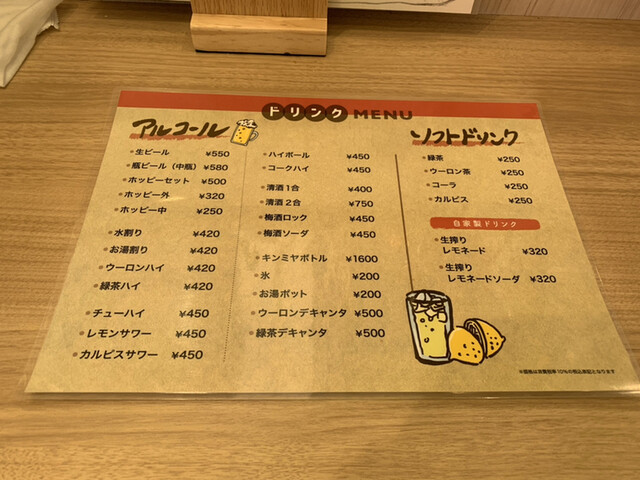 ドリンク MENU
アルコール
生ビール ¥550
瓶ビール（中瓶） ¥580
ホッピーセット ¥500
ホッピー外 ¥320
ホッピー中 ¥250
水割り ¥420
お湯割り ¥420
ウーロンハイ ¥420
緑茶ハイ ¥420
チューハイ ¥450
レモンサワー ¥450
カルピスサワー ¥450
ハイボール ¥450
コークハイ ¥450
清酒1合 ¥400
清酒2合 ¥750
梅酒ロック ¥450
梅酒ソーダ ¥450
キンミヤボトル ¥1600
氷 ¥200
お湯ポット ¥200
ウーロンデキャンタ ¥500
緑茶デキャンタ ¥500
ソフトドリンク
緑茶 ¥250
ウーロン茶 ¥250
コーラ ¥250
カルピス ¥250
自家製ドリンク
生搾り
レモネード ¥320
生搾り
レモネードソーダ ¥320
※価格は消費税率10%の税込表記となります